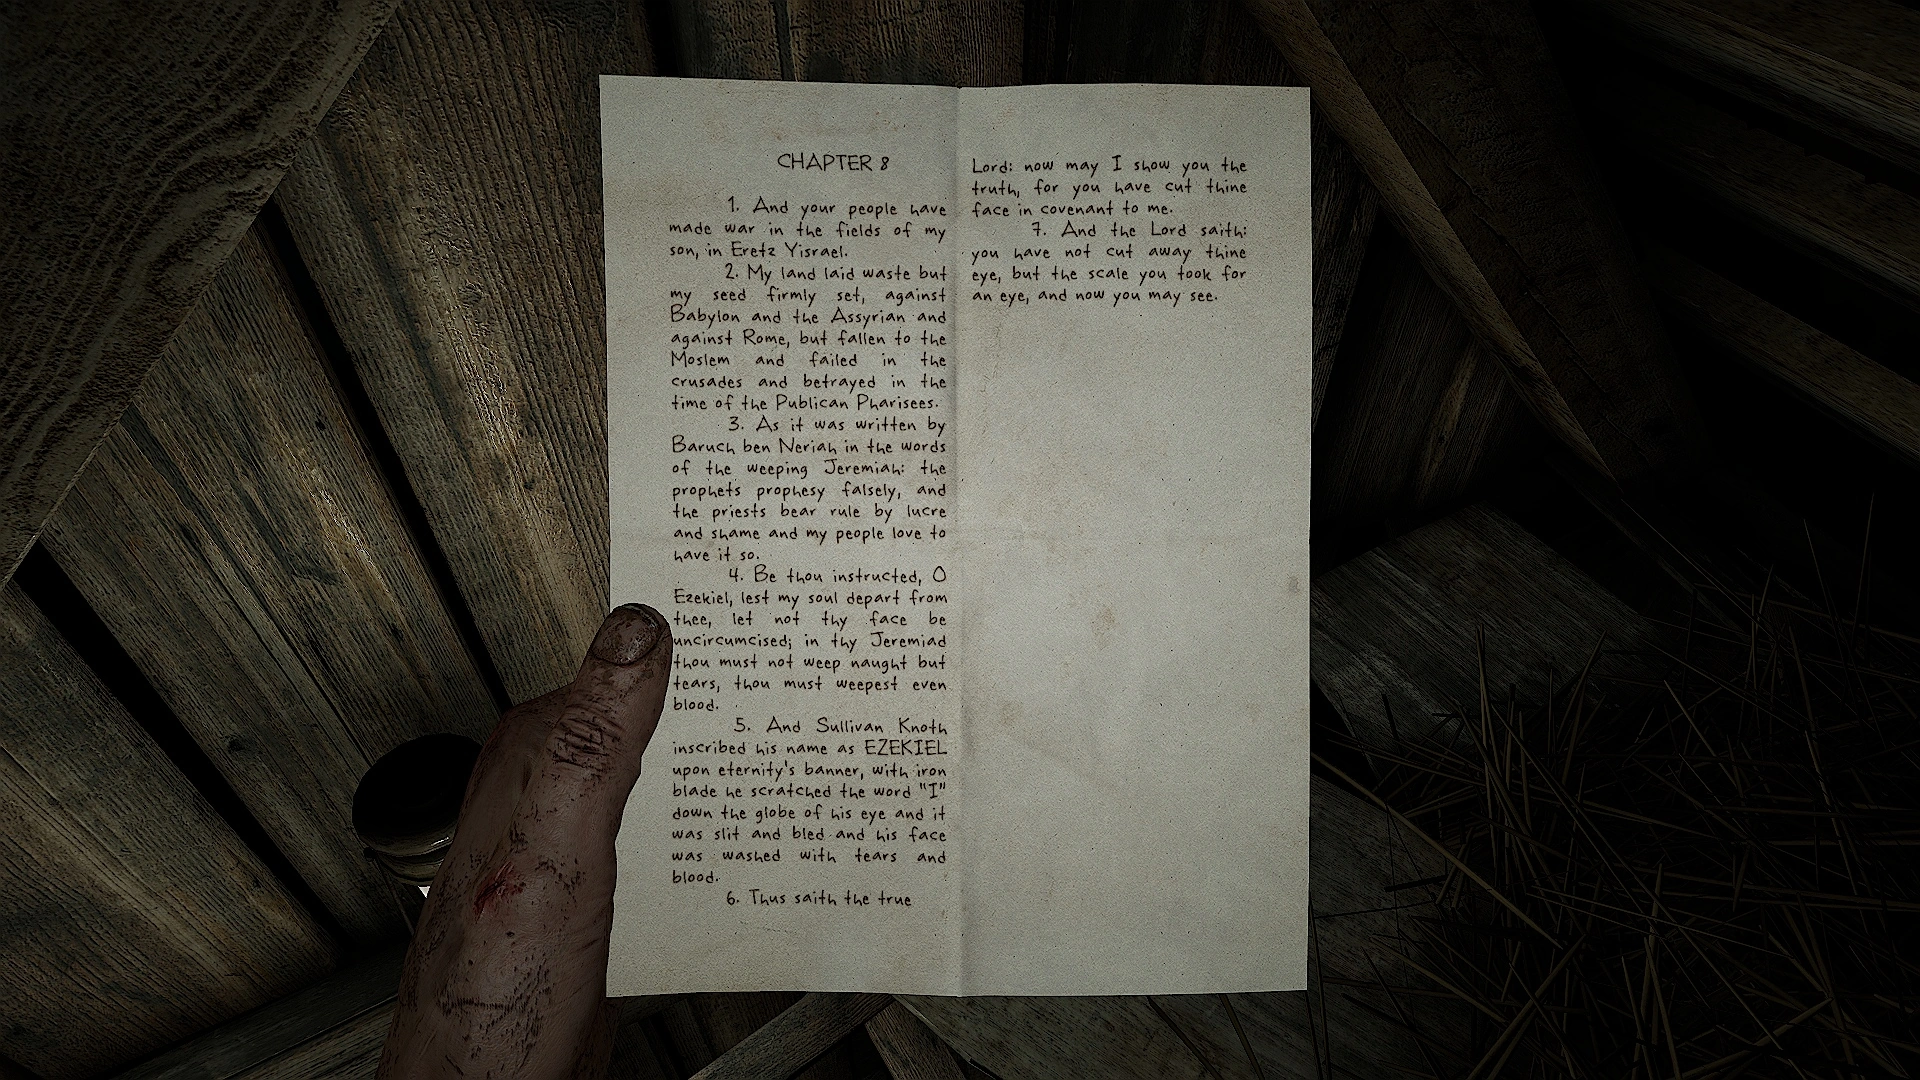 CHAPTER 8
1. And your people have
made war in the fields of my
son, in Eretz Yisrael.
2. My land laid waste but
my seed firmly set, against
Babylon and the Assyrian and
against Rome, but fallen to the
Moslem and failed in the
crusades and betrayed in the
time of the Publican Pharisees.
3. As it was written by
Baruch ben Neriah in the words
of the weeping Jeremiah: the
prophets prophesy falsely, and
the priests bear rule by lucre
and shame and my people love to
have it so.
4. Be thou instructed, O
Ezekiel, lest my soul depart from
thee, let not thy face be
uncircumcised; in thy Jeremiad
thou must not weep naught but
tears, thou must weepest even
blood.
5. And Sullivan Knoth
inscribed his name as EZEKIEL
upon eternity's banner, with iron
blade he scratched the word "I"
down the globe of his eye and it
was slit and bled and his face
was washed with tears and
blood.
6. Thus saith the true
Lord: now may I show you the
truth, for you have cut thine
face in covenant to me.
7. And the Lord saith:
you have not cut away thine
eye, but the scale you took for
an eye, and now you may see.